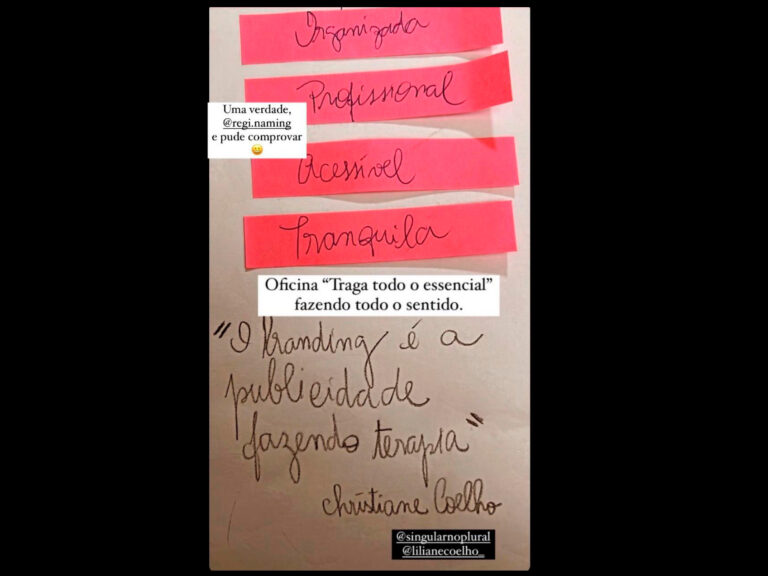 Organizada
Profissional
Uma verdade,
@regi.naming
e pude comprovar
😄
Acessível
Tranquila
Oficina “Traga todo o essencial”
fazendo todo o sentido.
"O branding é a
publicidade
fazendo terapia"
Christiane Coelho
@singularnoplural
@lilianecoelho_